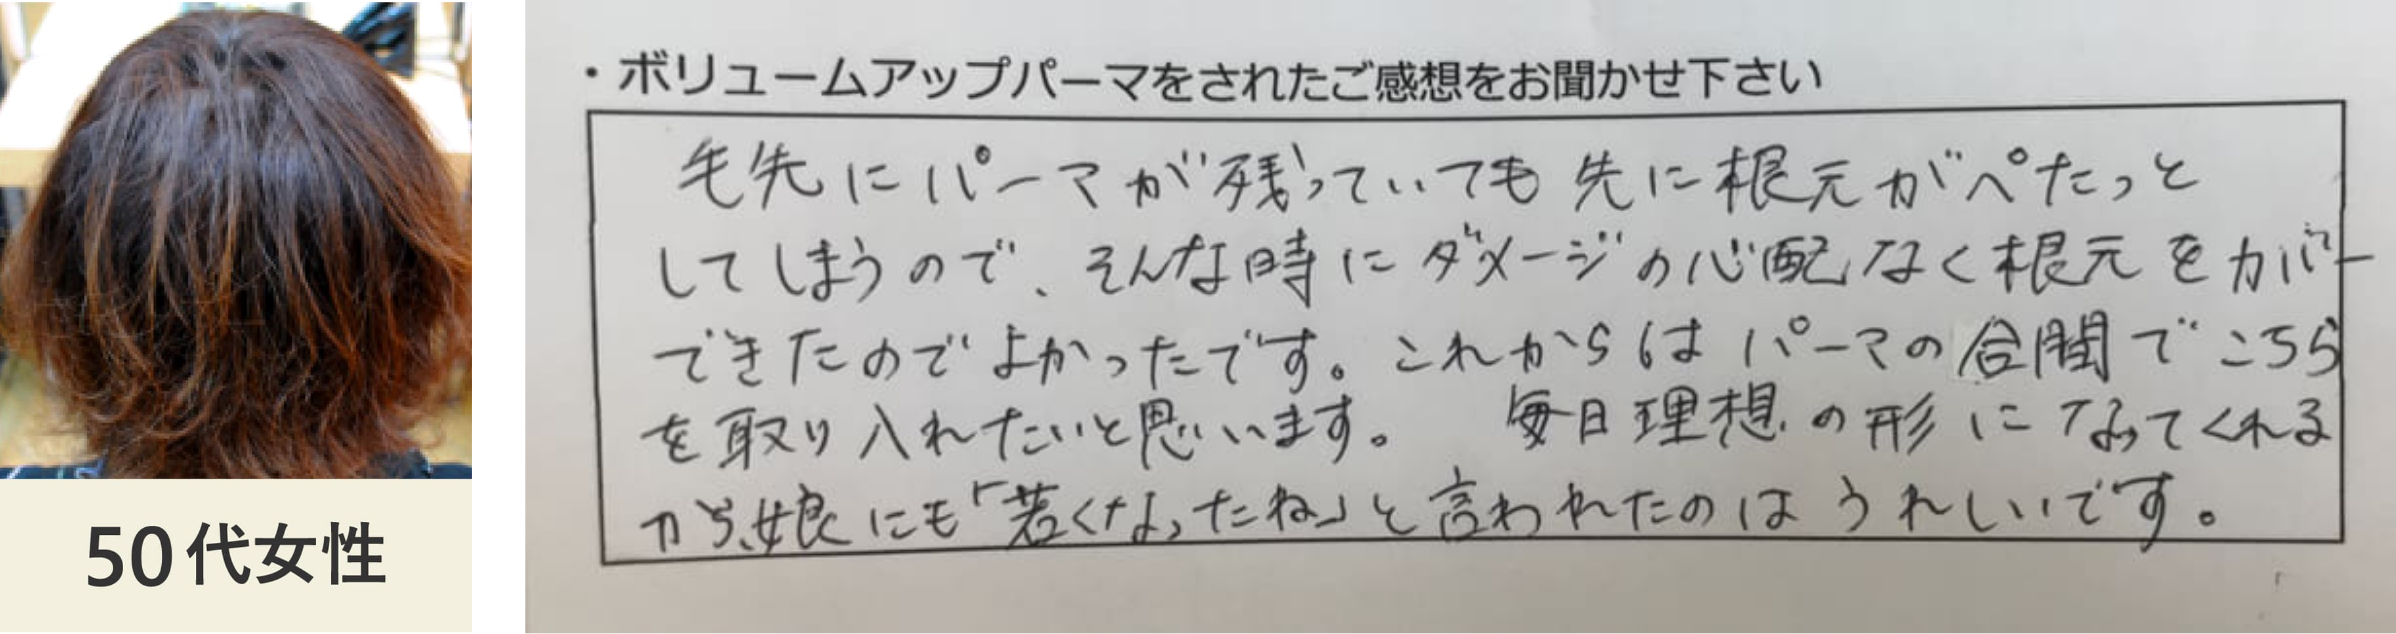 ・ボリュームアップパーマをされたご感想をお聞かせ下さい
毛先にパーマが残っていても先に根元がペたっと
してしまうので、そんな時にダメージの心配なく根元をカバー
できたのでよかったです。これからはパーマの合間でこちら
を取り入れたいと思います。 毎日理想の形になってくれる
から、娘にも「若くなったね」と言われたのはうれしいです。
50代女性